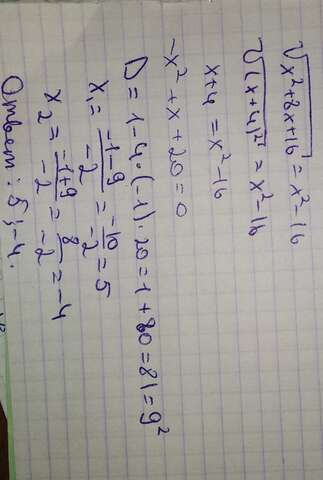 √x²+8x+16 = x²-16
√(x+4)² = x²-16
x+4 = x²-16
-x²+x+20=0
D=1-4·(-1)·20=1+80=81=9²
x₁= -1-9/-2 = -10/-2 = 5
x₂= -1+9/-2 = 8/-2 = -4
Ответ: 5; -4.